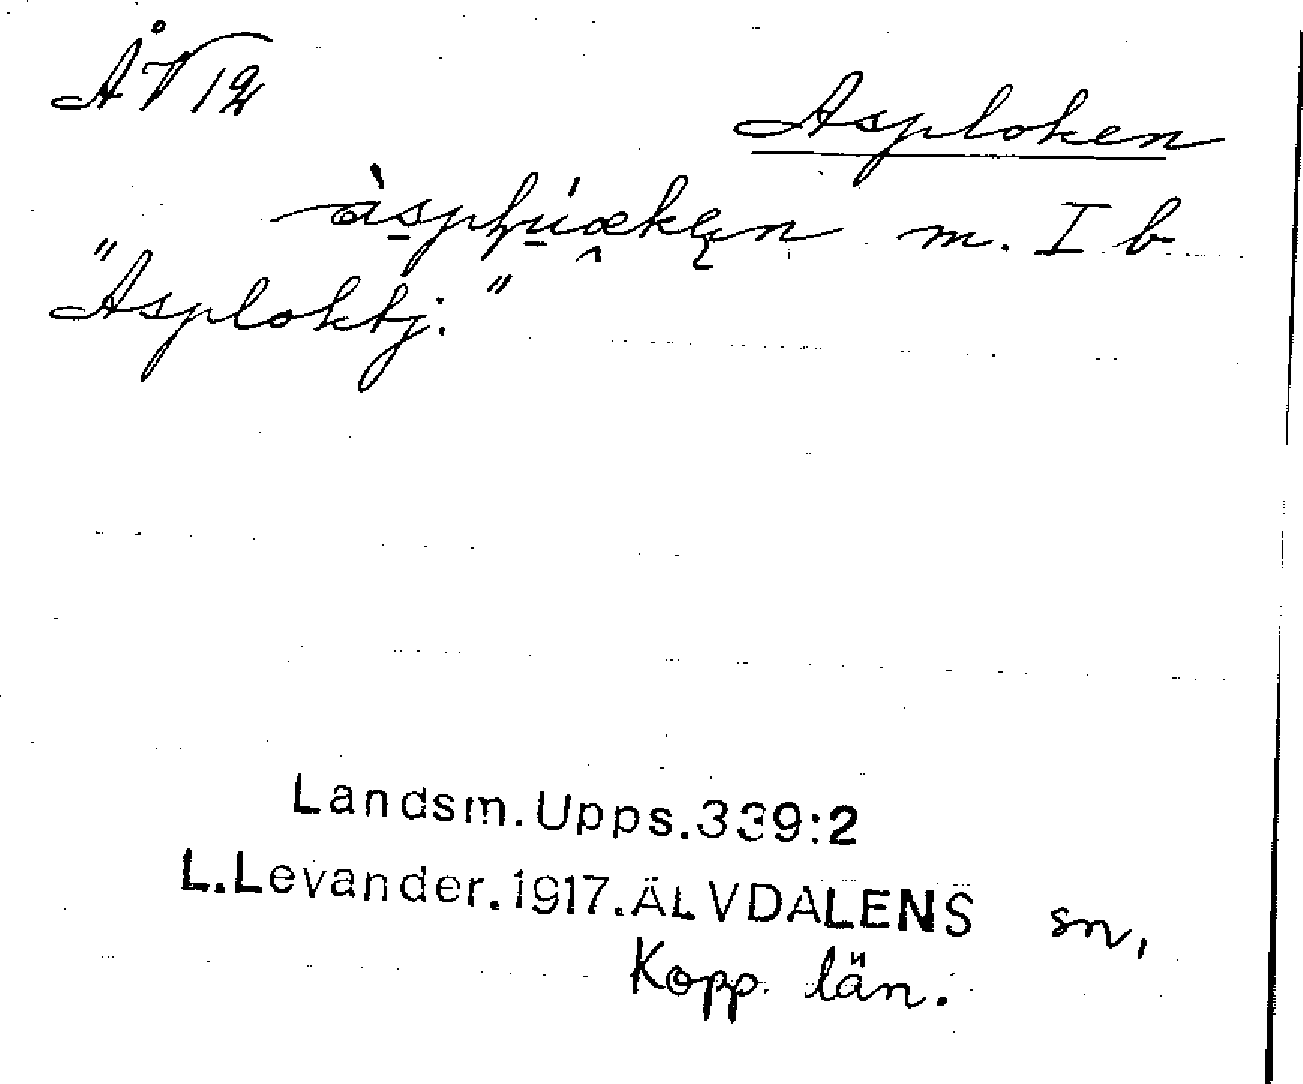 ÅV 12
Asploken
m. I b
"Asploktj."
Landsm.Upps.339:2
L.Levander.1917.ÄLVDALENS sn,
Kopp. län.